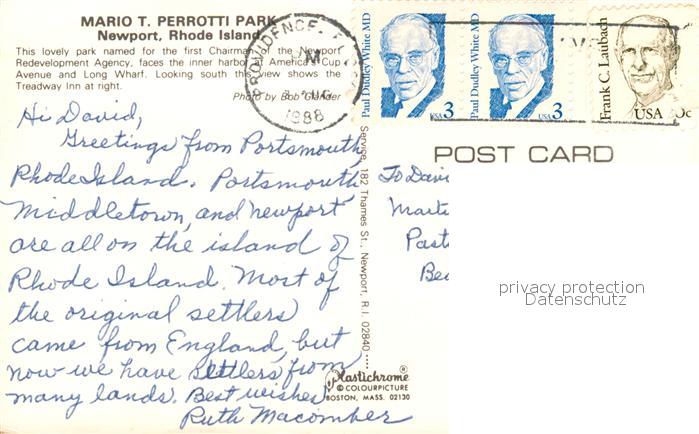 MARIO T. PERROTTI PARK
Newport, Rhode Island
This lovely park named for the first Chairman of the Newport
Redevelopment Agency, faces the inner harbor at America's Cup
Avenue and Long Wharf. Looking south this view shows the
Treadway Inn at right.
Photo by Bob
PROVIDENCE
AUG
1988
Paul Dudley White MD
USA 3
Paul Dudley White MD
USA 3
Frank C. Laubach
USA 20c
Hi David,
Greetings from Portsmouth,
Rhode Island. Portsmouth,
Middletown, and Newport
are all on the island of
Rhode Island. Most of
the original settlers
came from England, but
now we have settlers from
many lands. Best wishes,
Ruth Macomber
Service, 182 Thames St., Newport, R.I. 02840
Plastichrome®
© COLOURPICTURE
BOSTON, MASS. 02130
POST CARD
To Davi
Marti
Past
Be
privacy protection
Datenschutz